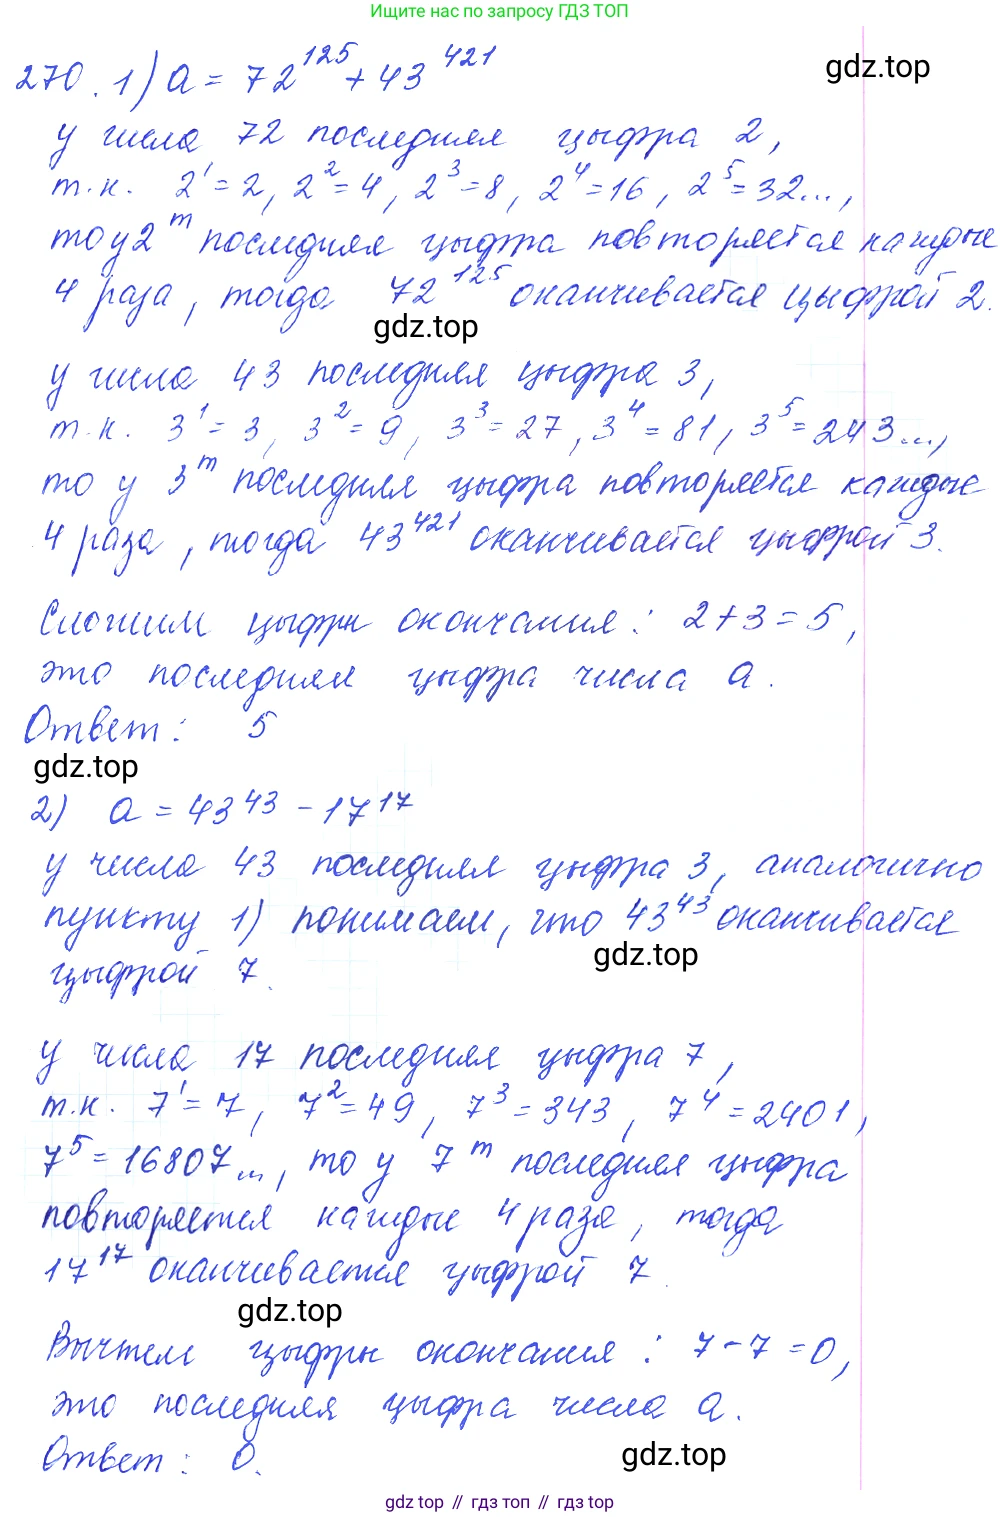 Ищите нас по запросу ГДЗ ТОП
270. 1) a = 72^125 + 43^421
gdz.top
у числа 72 последняя цыфра 2,
т.к. 2^1 = 2, 2^2 = 4, 2^3 = 8, 2^4 = 16, 2^5 = 32...,
то у 2^m последняя цыфра повторяется каждые
4 раза, тогда 72^125 оканчивается цыфрой 2.
gdz.top
у числа 43 последняя цыфра 3,
т.к. 3^1 = 3, 3^2 = 9, 3^3 = 27, 3^4 = 81, 3^5 = 243...,
то у 3^m последняя цыфра повторяется каждые
4 раза, тогда 43^421 оканчивается цыфрой 3.
Сложим цыфры окончания: 2 + 3 = 5,
это последняя цыфра числа a.
Ответ: 5
gdz.top
2) a = 43^43 - 17^17
у числа 43 последняя цыфра 3, аналогично
пункту 1) понимаем, что 43^43 оканчивается
gdz.top
цыфрой 7.
у числа 17 последняя цыфра 7,
т.к. 7^1 = 7, 7^2 = 49, 7^3 = 343, 7^4 = 2401,
7^5 = 16807..., то у 7^m последняя цыфра
повторяется каждые 4 раза, тогда
17^17 оканчивается цыфрой 7.
gdz.top
Вычтем цыфры окончания: 7 - 7 = 0,
это последняя цыфра числа a.
Ответ: 0.
gdz.top
gdz top // гдз топ // гдз top